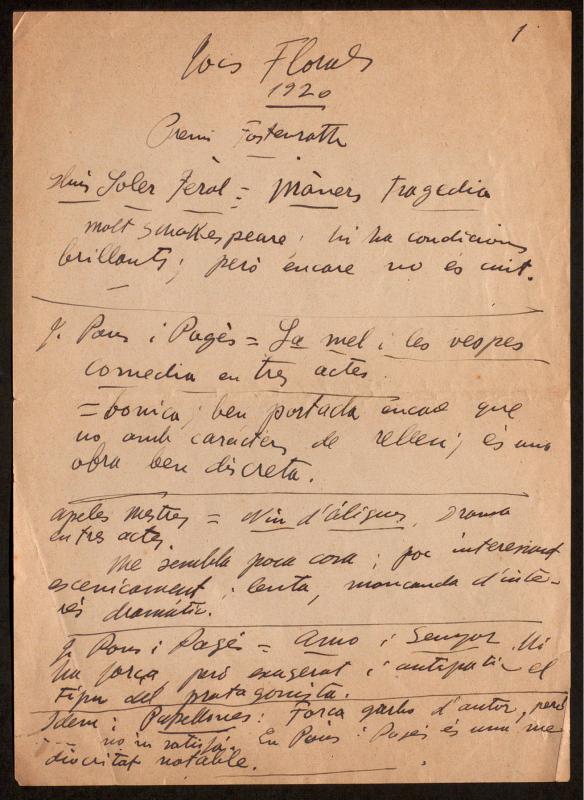 1
Jocs Florals
1920
Premi Fastenrath
Lluis Soler Teròl = Màners tragedia
molt Schakespeare; hi ha condicions
brillants; però encare no és cuit.
J. Pous i Pagès = La mel i les vespes
comedia en tres actes.
= bonica; ben portada encare que
no amb caràcters de relleu; és una
obra ben discreta.
Apeles Mestres = Niu d'àligues, Drama
en tres actes,
Me sembla poca cosa; poc interessant
escenicament; lenta, mancanda d'inte-
rés dramàtic.
J. Pous i Pagés = Amo i Senyor. Hi
ha força, però exagerat i antipatic el
tipu del protagonista.
Idem: Papellones: Força garbo d'autor, però
no m satisfà. En Pous i Pagés és una me
diocritat notable.